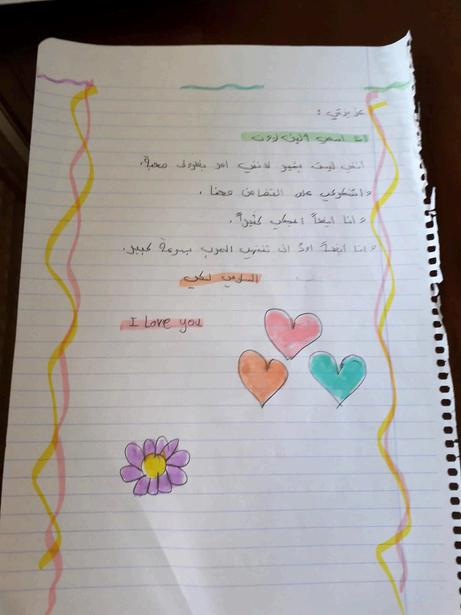 عزيزتي :
انا اسمي
انني ليست بخير لانني امر بظروف صعبة.
واشكركي على التضامن معنا .
وانا ايضاً احبكي كثيراً.
وانا ايضاً اودُ ان تنتهي الحرب بسرعة كبير.
السلامي لكي
I Love you